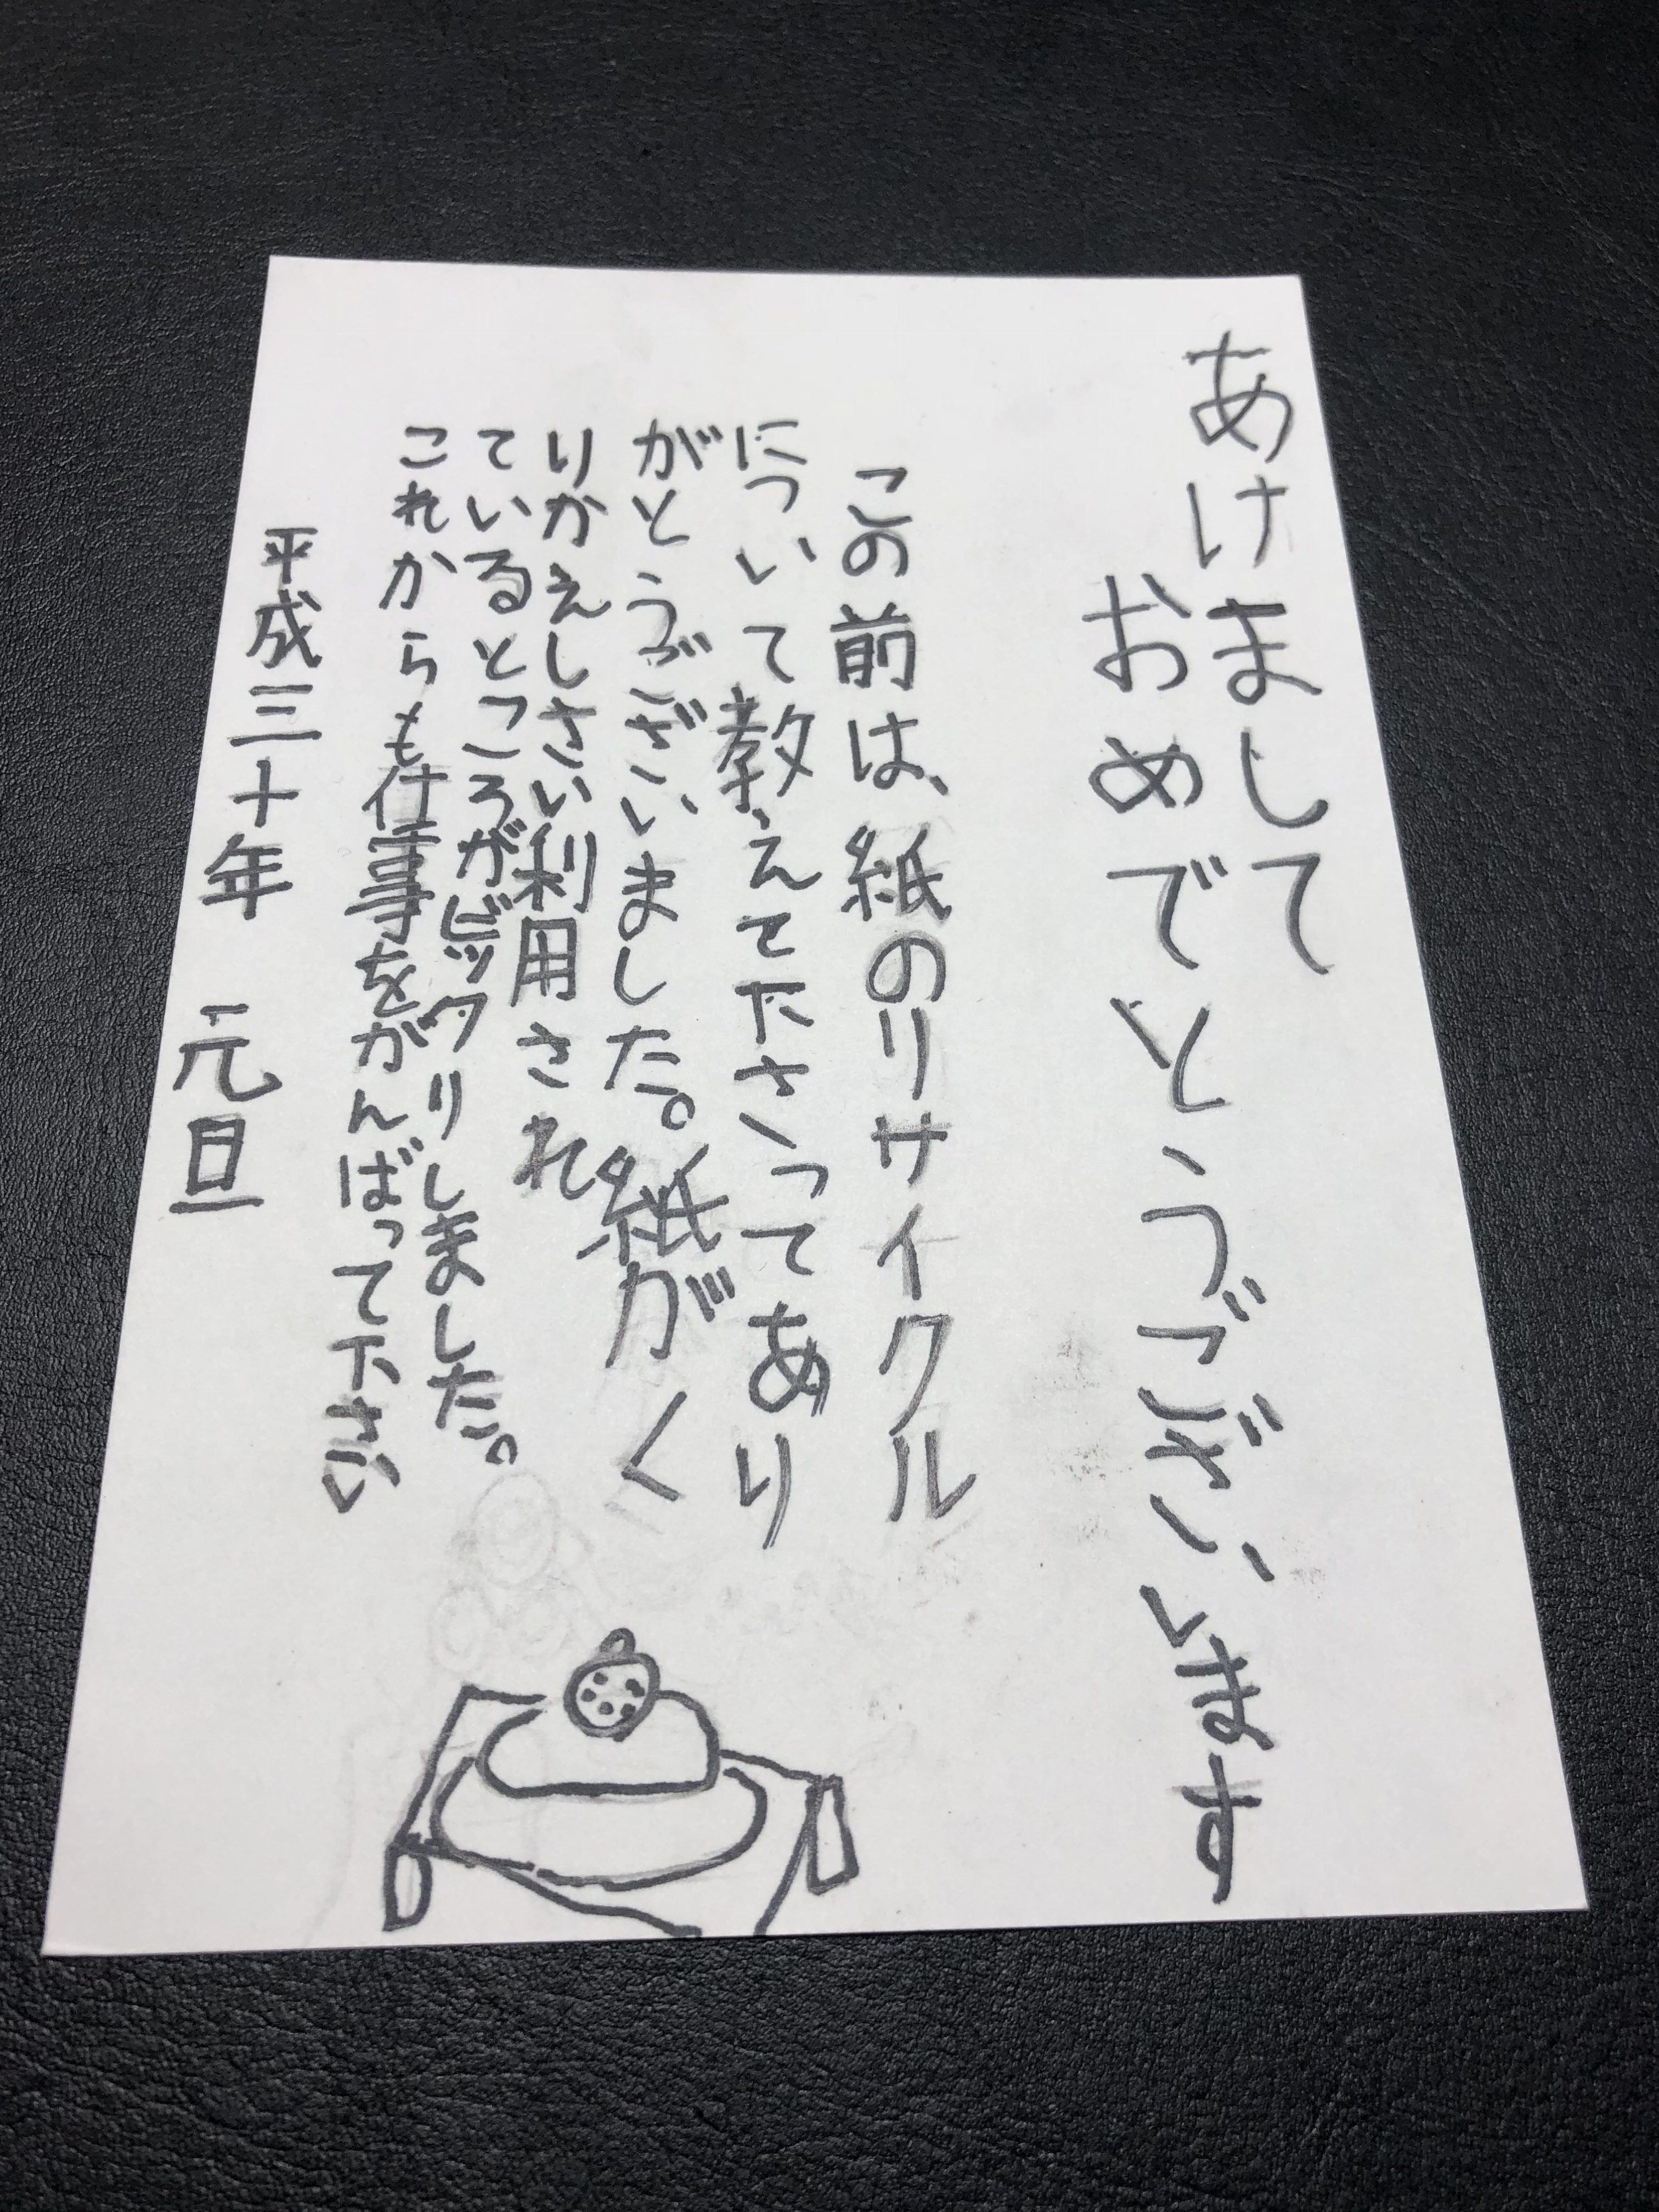 あけまして
おめでとうございます
この前は、紙のリサイクル
について教えて下さってあり
がとうございました。紙がく
りかえしさい利用され
ているところがビックリしました。
これからも仕事をがんばって下さい
平成三十年 元旦